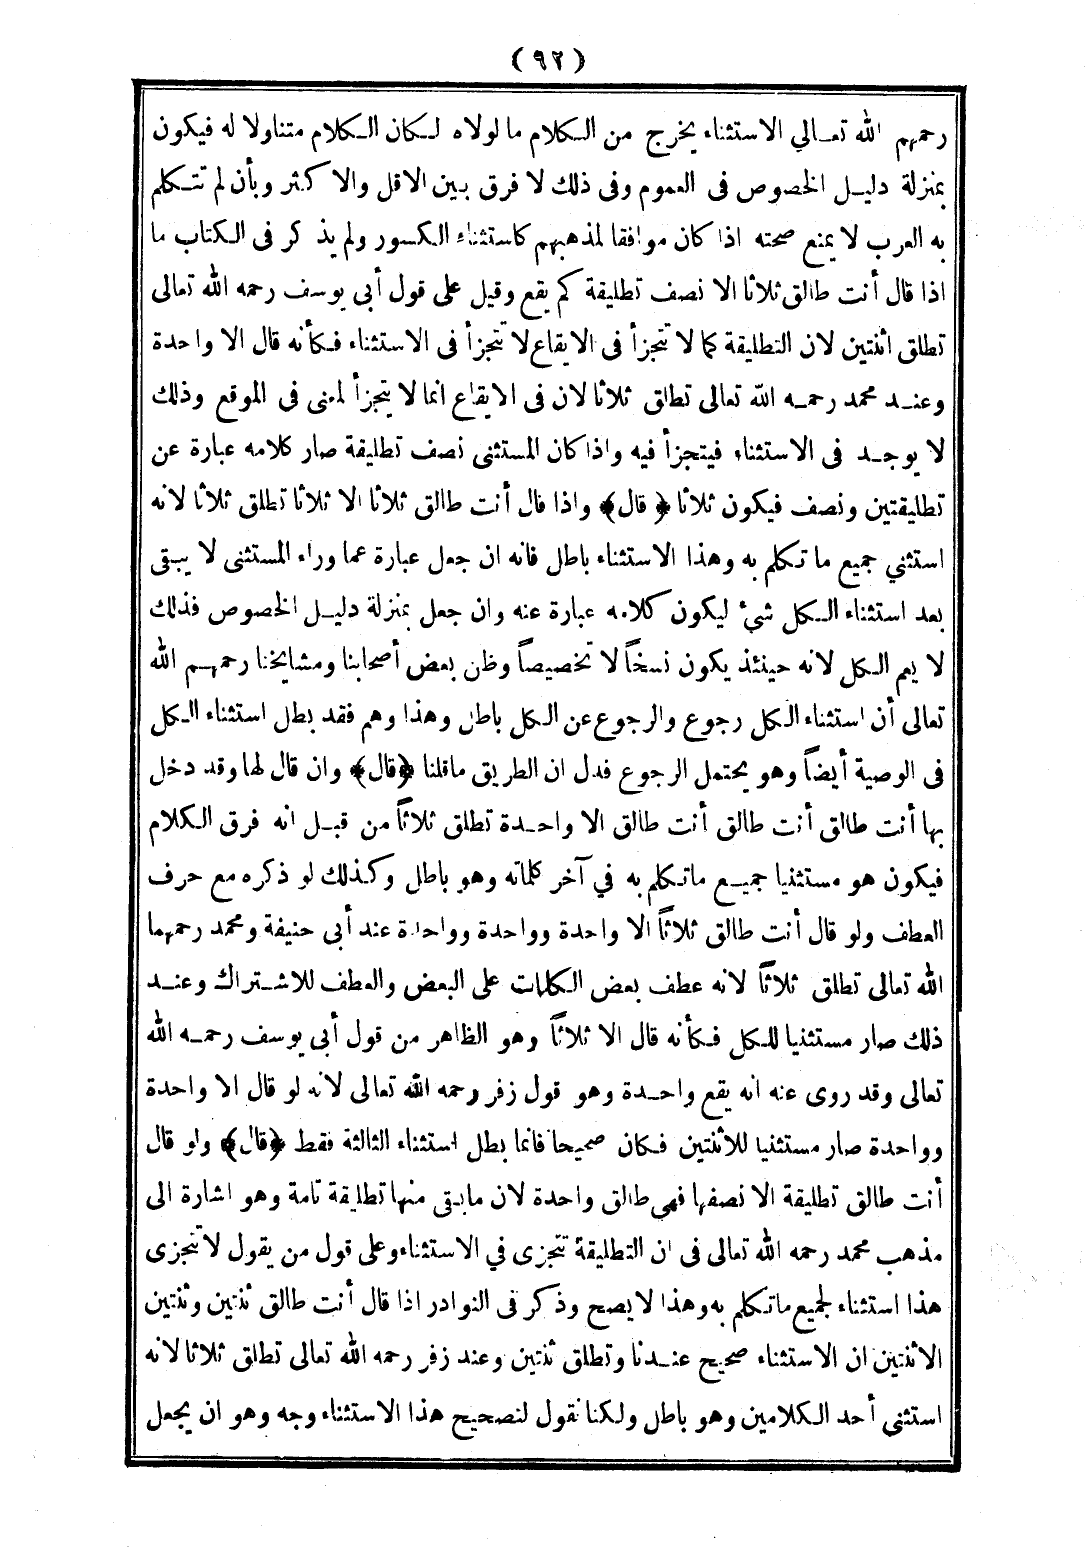 (٩٢)
رحمهم الله تعالي الاستثناء يخرج من الكلام ما لولاه لكان الكلام متناولا له فيكون
بمنزلة دليل الخصوص فى العموم وفى ذلك لا فرق بين الاقل والا كثر وبأن لم تتكلم
به العرب لا يمنع صحته اذا كان موافقا لمذهبهم كاستثناء الكسور ولم يذ كر فى الكتاب ما
اذا قال أنت طالق ثلاثا الا نصف تطليقة كم يقع وقيل على قول أبي يوسف رحمه الله تعالى
تطلق اثنتين لان التطليقة كما لا تتجزأ فى الايقاع لا تتجزأ فى الاستثناء فكأنه قال الا واحدة
وعند محمد رحمه الله تعالى تطلق ثلاثا لان فى الايقاع انما لا يتجزأ لمعنى فى الموقع وذلك
لا يوجد فى الاستثناء فيتجزأ فيه واذا كان المستثنى نصف تطليقة صار كلامه عبارة عن
تطليقتين ونصف فيكون ثلاثا ﴿قال﴾ واذا قال أنت طالق ثلاثا الا ثلاثا تطلق ثلاثا لانه
استثني جميع ما تكلم به وهذا الاستثناء باطل فانه ان جعل عبارة عما وراء المستثنى لا يبقى
بعد استثناء الكل شئ ليكون كلامه عبارة عنه وان جعل بمنزلة دليل الخصوص فذلك
لا يعم الكل لانه حينئذ يكون نسخاً لا تخصيصاً وظن بعض أصحابنا ومشايخنا رحمهم الله
تعالى أن استثناء الكل رجوع والرجوع عن الكل باطل وهذا وهم فقد بطل استثناء الكل
فى الوصية أيضاً وهو يحتمل الرجوع فدل ان الطريق ماقلنا ﴿قال﴾ وان قال لها وقد دخل
بها أنت طالق أنت طالق أنت طالق الا واحدة تطلق ثلاثاً من قبل انه فرق الكلام
فيكون هو مستثنيا جميع ماتكلم به في آخر كلماته وهو باطل وكذلك لو ذكره مع حرف
العطف ولو قال أنت طالق ثلاثاً الا واحدة وواحدة وواحدة عند أبى حنيفة ومحمد رحمهما
الله تعالى تطلق ثلاثاً لانه عطف بعض الكلمات على البعض والعطف للاشتراك وعند
ذلك صار مستثنيا للكل فكأنه قال الا ثلاثاً وهو الظاهر من قول أبي يوسف رحمه الله
تعالى وقد روى عنه انه يقع واحدة وهو قول زفر رحمه الله تعالى لانه لو قال الا واحدة
وواحدة صار مستثنيا للاثنتين فكان صحيحا فانما بطل استثناء الثالثة فقط ﴿قال﴾ ولو قال
أنت طالق تطليقة الا نصفها فهى طالق واحدة لان مابقى منها تطليقة تامة وهو اشارة الى
مذهب محمد رحمه الله تعالى فى ان التطليقة تتجزى في الاستثناء وعلى قول من يقول لا تتجزى
هذا استثناء لجميع ماتكلم به وهذا لا يصح وذكر فى النوادر اذا قال أنت طالق ثنتين وثنتين
الا ثنتين ان الاستثناء صحيح عندنا وتطلق ثنتين وعند زفر رحمه الله تعالى تطلق ثلاثا لانه
استثنى أحد الكلامين وهو باطل ولكنا نقول لتصحيح هذا الاستثناء وجه وهو ان يجعل